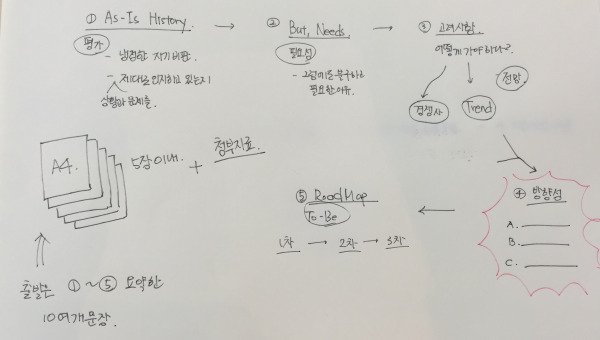 ① As-Is History.
평가
- 냉정한 자기비판.
- 제대로 인지하고 있는지
상황과 문제를.
② But, Needs.
필요성
- 그럼에도 불구하고
필요한 이유.
③ 고려사항.
어떻게 가야하나?
경쟁사
Trend
전망
④ 방향성
A.
B.
C.
⑤ RoadMap
To-Be
1차 → 2차 → 3차
A4.
5장 이내.
+ 첨부자료.
출발은 ①~⑤ 요약한
10여개 문장.